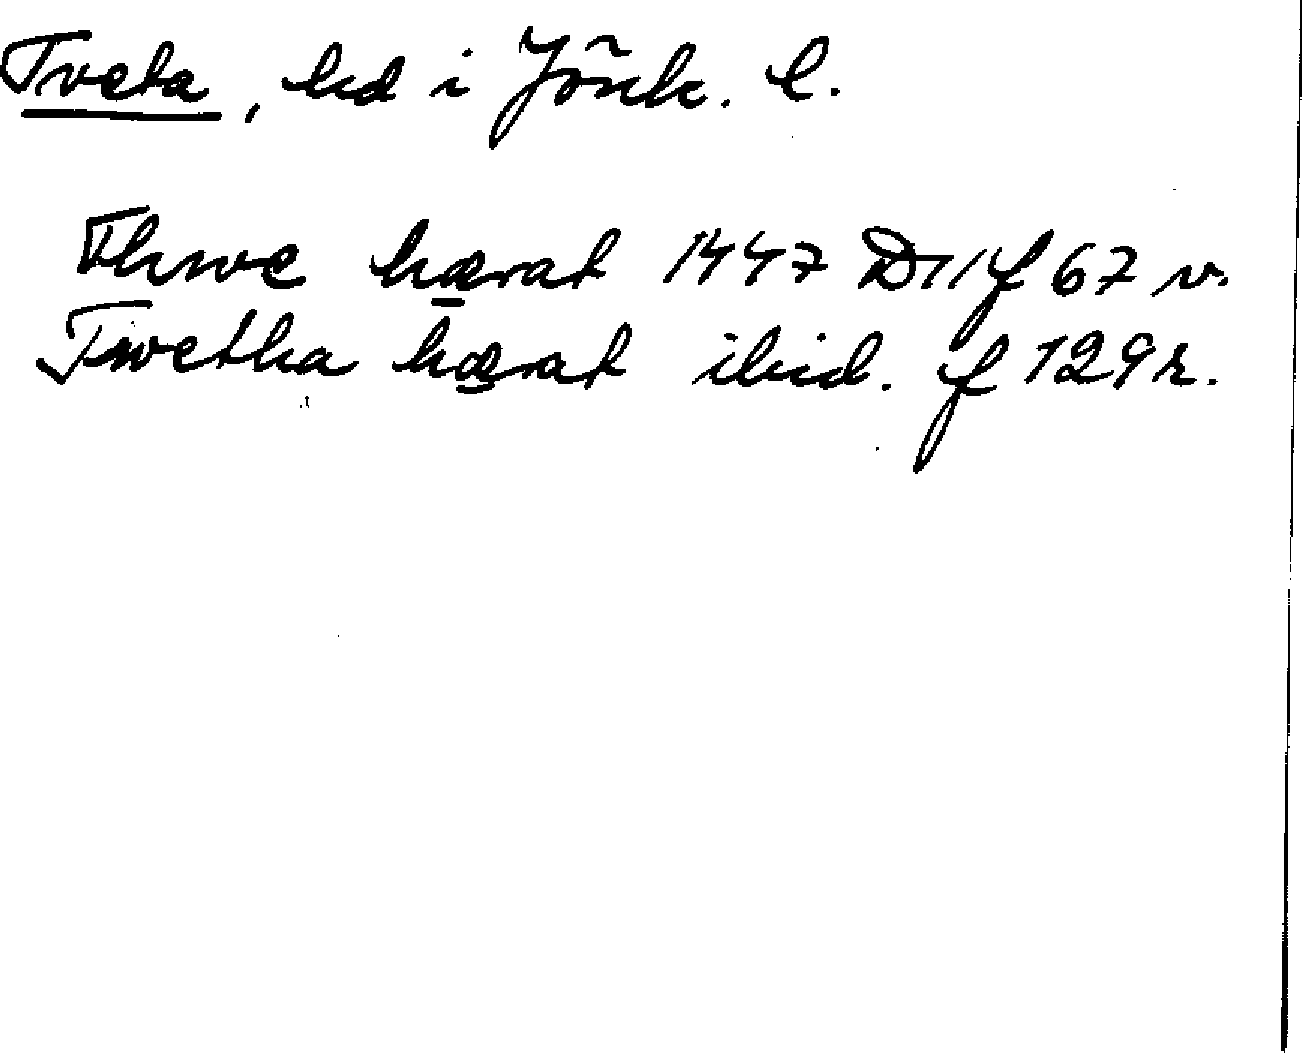 Tveta, hd i Jönk. l.
Thwe hærat 1447 D 11 f 67 v.
Twetha hærat ibid. f 129 r.